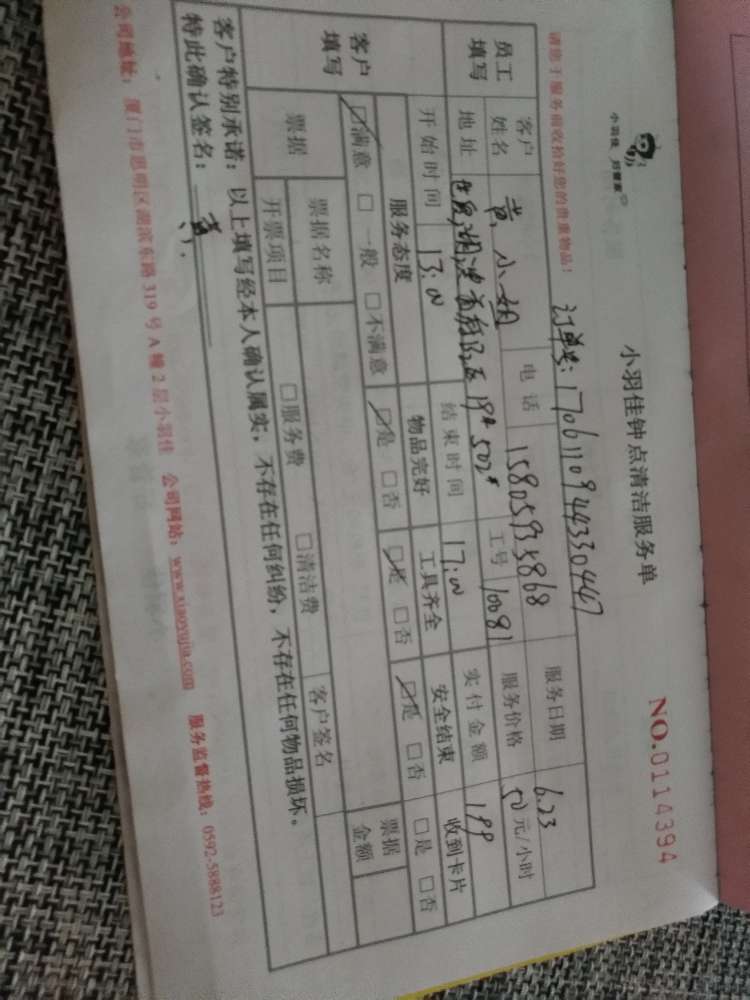 小羽佳 好管家
小羽佳钟点清洁服务单
NO.0114394
请您于服务前收拾好您的贵重物品！
订单号：17061109443304467
员工填写
客户姓名 小姐 电话 15805935868 服务日期 6.23
地址 19# 502# 工号 10081 服务价格 50元/小时
开始时间 13:00 结束时间 17:00 实付金额 199
客户填写
服务态度 物品完好 工具齐全 安全结束 收到卡片
☑满意 □一般 □不满意 ☑是 □否 ☑是 □否 ☑是 □否 □是 □否
票据 票据名称 客户签名 票据金额
开票项目 □服务费 □清洁费
客户特别承诺：以上填写经本人确认属实，不存在任何纠纷，不存在任何物品损坏。
特此确认签名：
公司地址：厦门市思明区湖滨东路319号A幢2层小羽佳 公司网站：www.xiaoyujia.com 服务监督热线：0592-5888123